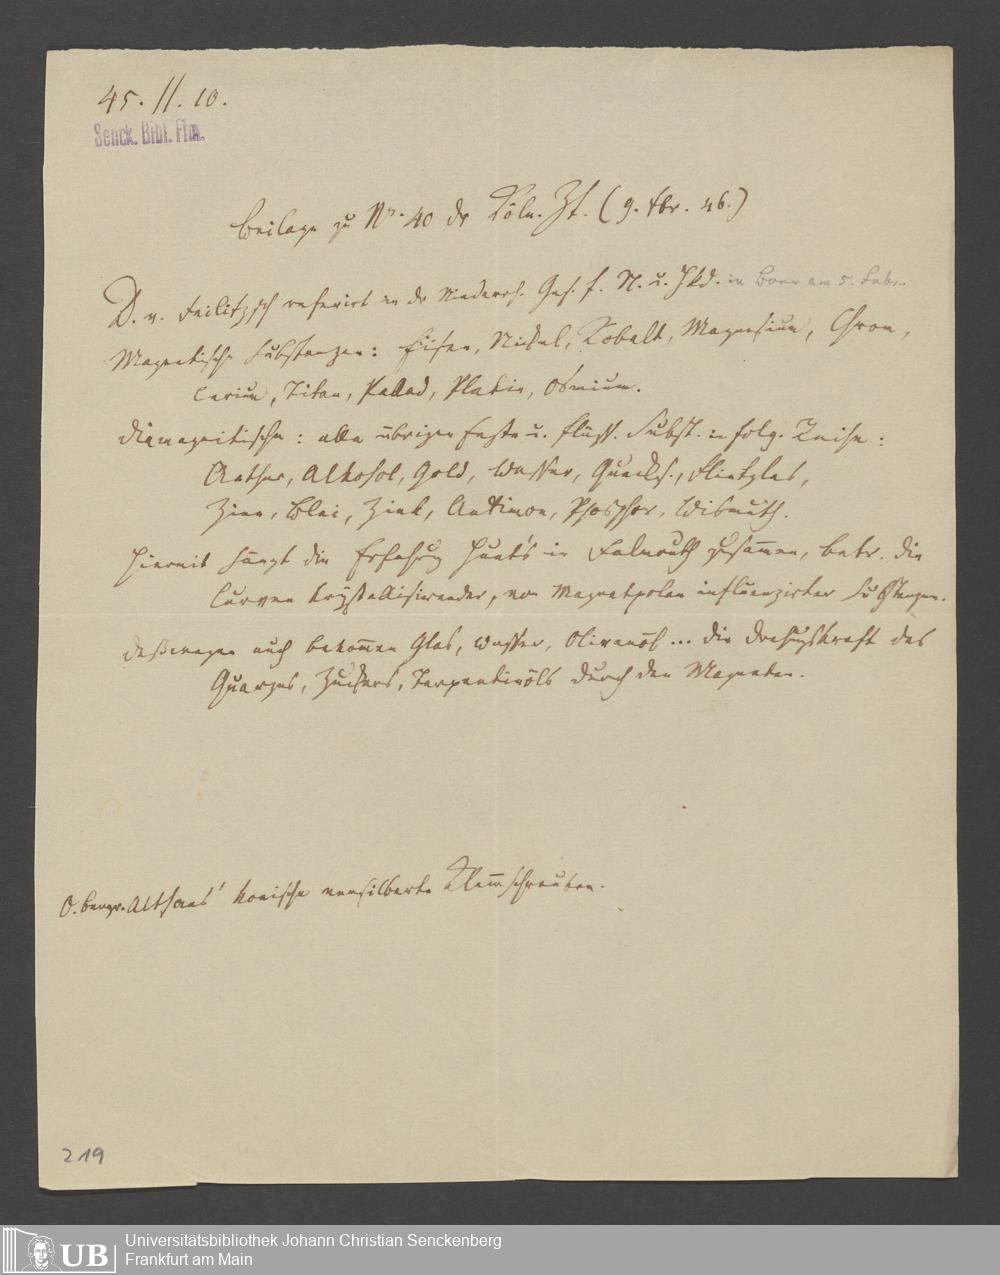 45. II. 10.
Senck. Bibl. Ffm.
Beilage zu Nr. 40 dr Köln. Zt. (9. Fbr. 46.)
D. v. Feilitzsch referirt in dr Niederrh. Ges. f. N. u. Hkd. in Bonn am 5. Febr.
Magnetische Substanzen: Eisen, Nickel, Kobalt, Magnesium, Chrom,
Cerium, Titan, Pallad, Platin, Osmium.
diamagnetische: alle übrigen festen u. flüss. Subst. in folg. Reihe:
Aether, Alkohol, Gold, Wasser, Quecks., Flintglas,
Zinn, Blei, Zink, Antimon, Phosphor, Wismuth.
Hiermit hängt die Erfahrung Hunt's in Falmouth zusammen, betr. die
Curven krystallisirender, von Magnetpolen influenzirter Substanzen.
Deßwegen auch bekommen Glas, Wasser, Olivenöl... die Drehungskraft des
Quarzes, Zuckers, Terpentinöls durch den Magneten.
O. Bergr. Althans' konische versilberte Klemmschrauben.
219
UB
Universitätsbibliothek Johann Christian Senckenberg
Frankfurt am Main